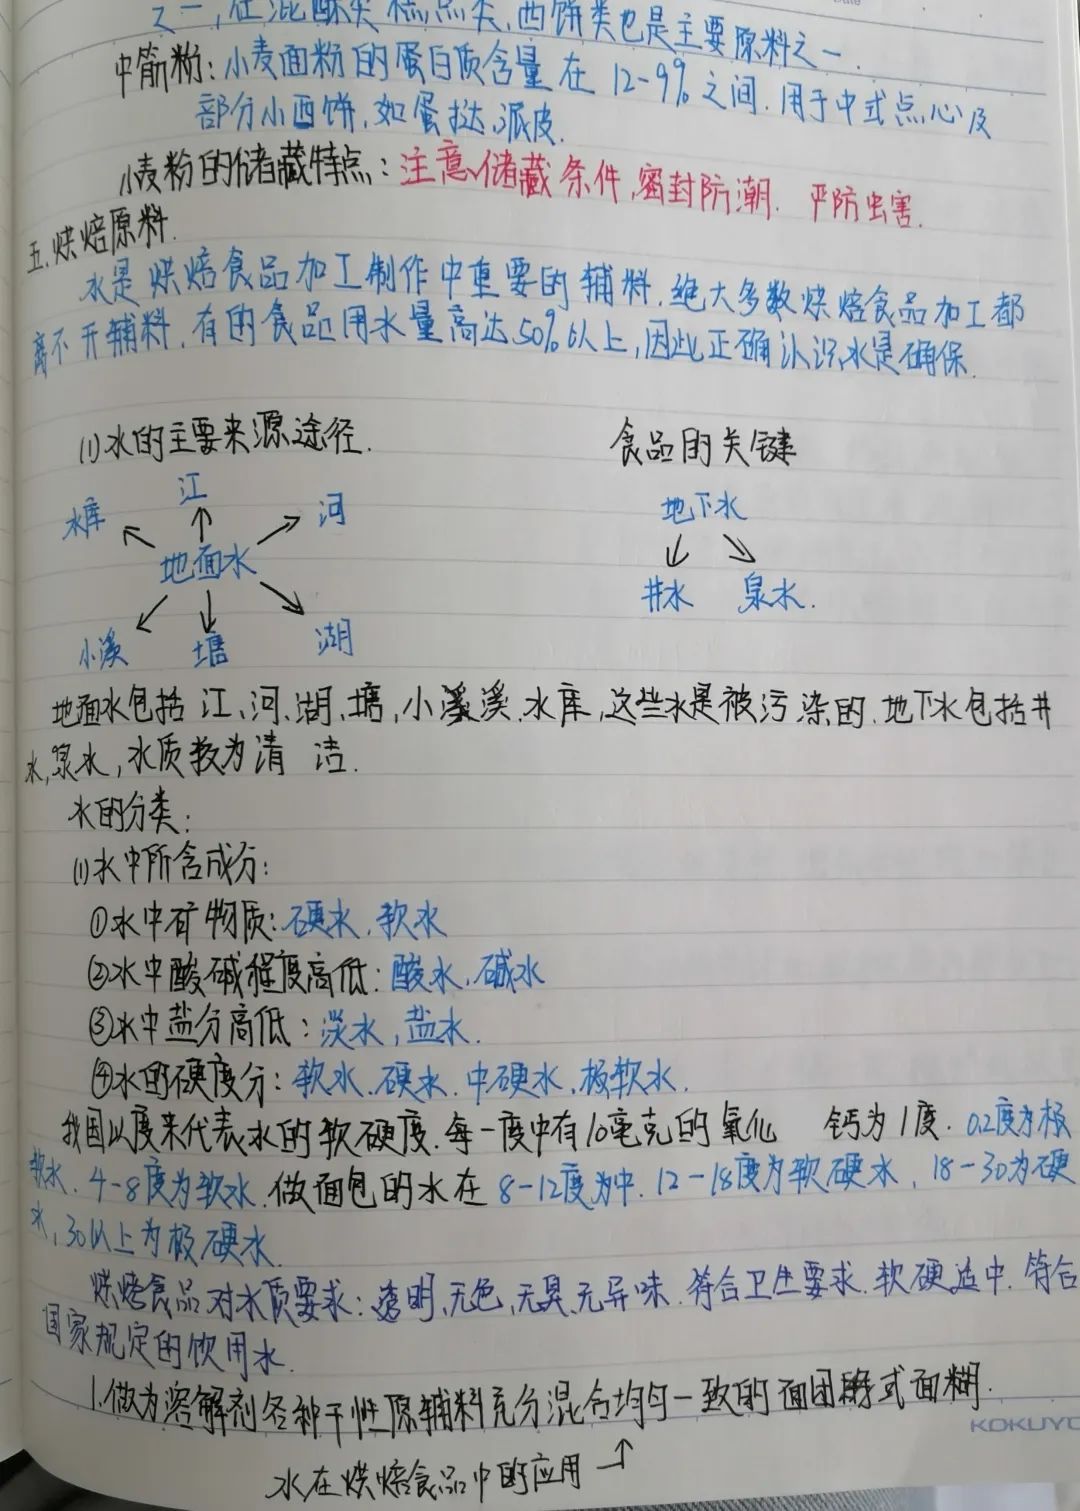 之一,在混酥类糕点类,西饼类也是主要原料之一.
中筋粉:小麦面粉的蛋白质含量在12-9%之间.用于中式点心及
部分小西饼,如蛋挞、派皮.
小麦粉的储藏特点:注意储藏条件,密封防潮.严防虫害.
五.烘焙原料.
水是烘焙食品加工制作中重要的辅料.绝大多数烘焙食品加工都
离不开辅料.有的食品用水量高达50%以上,因此正确认识水是确保.
(1)水的主要来源途径. 食品的关键
江
水库 河 地下水
地面水
井水 泉水.
小溪 塘 湖
地面水包括江、河、湖、塘,小溪.水库,这些水是被污染的.地下水包括井
水,泉水,水质较为清 洁.
水的分类:
(1)水中所含成分:
①水中矿物质:硬水.软水
②水中酸碱程度高低:酸水.碱水
③水中盐分高低:淡水,盐水.
④水的硬度分:软水.硬水.中硬水.极软水.
我国以度来代表水的软硬度.每一度中有10毫克的氧化 钙为1度.02度为极
软水.4-8度为软水.做面包的水在8-12度为中.12-18度为软硬水,18-30为硬
水,30以上为极硬水.
烘烤食品对水质要求:透明,无色,无臭、无异味.符合卫生要求.软硬适中.符合
国家规定的饮用水.
1.做为溶解剂各种干性原辅料充分混合均匀一致的面团式面糊.
KOKUYO
水在烘焙食品中的应用